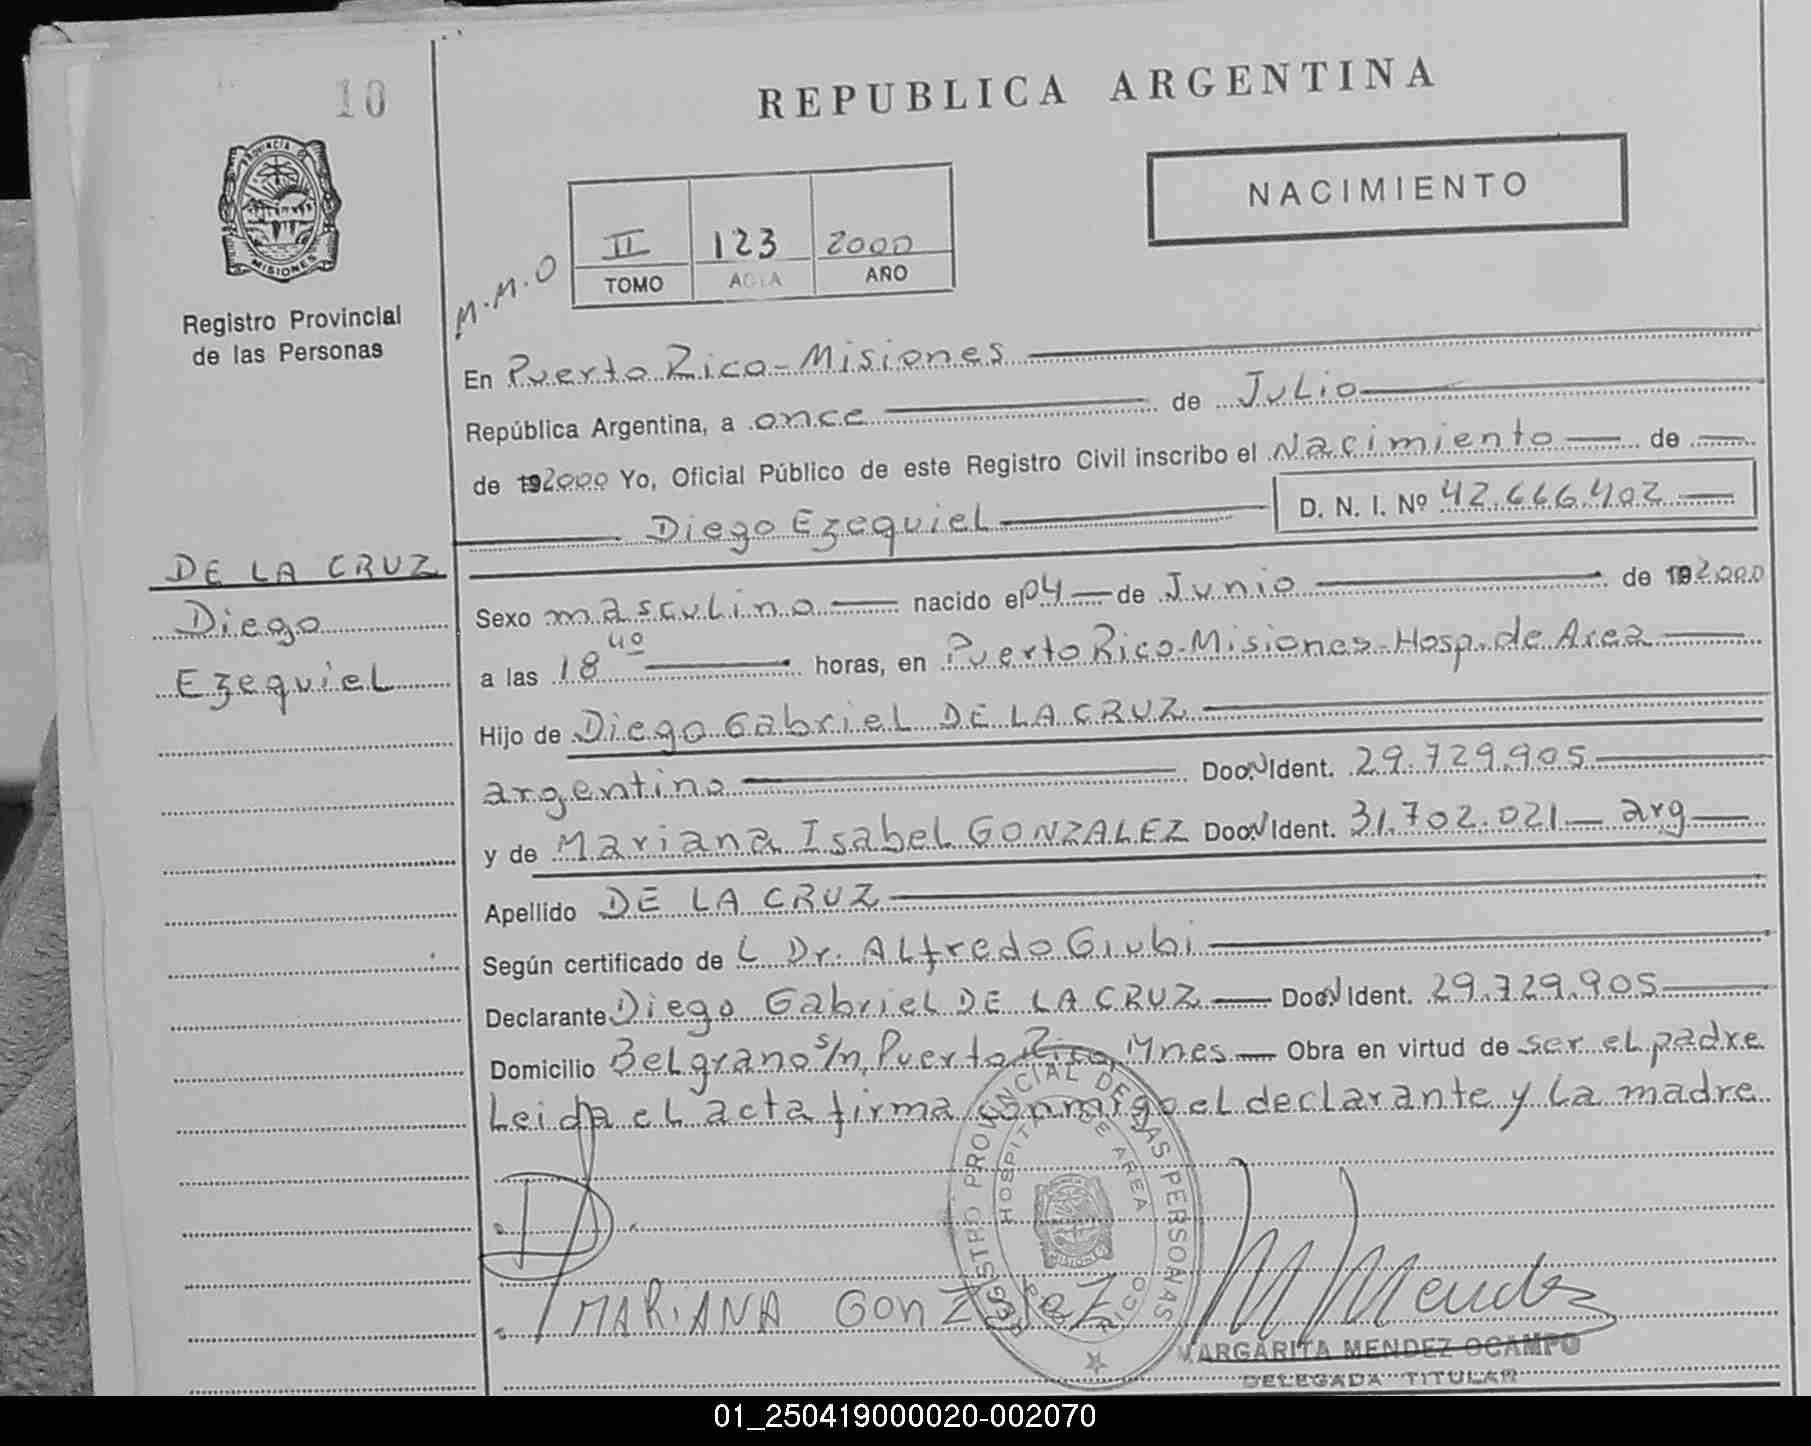 10
REPUBLICA ARGENTINA
PROVINCIA DE
MISIONES
NACIMIENTO
II 123 2000
TOMO ACTA AÑO
M.M.O
Registro Provincial
de las Personas
En Puerto Rico - Misiones
República Argentina, a once de Julio
de 192000 Yo, Oficial Público de este Registro Civil inscribo el Nacimiento de
Diego Ezequiel D. N. I. Nº 42.666.402
DE LA CRUZ
Diego
Ezequiel
Sexo masculino nacido el 04 de Junio de 192000
a las 18 40 horas, en Puerto Rico-Misiones-Hosp. de Area
Hijo de Diego Gabriel DE LA CRUZ
argentino Doc. Ident. 29.729.905
y de Mariana Isabel GONZALEZ Doc. Ident. 31.702.021 - arg
Apellido DE LA CRUZ
Según certificado de L Dr. Alfredo Giubi
Declarante Diego Gabriel DE LA CRUZ Doc. Ident. 29.729.905
Domicilio Belgrano s/n, Puerto Rico, Mnes Obra en virtud de ser el padre
Leida el acta firma conmigo el declarante y la madre
REGISTRO PROVINCIAL DE LAS PERSONAS
HOSPITAL DE AREA
MARiANA GonZaleZ
M Mendez
MARGARITA MENDEZ OCAMPO
DELEGADA TITULAR
01_250419000020-002070